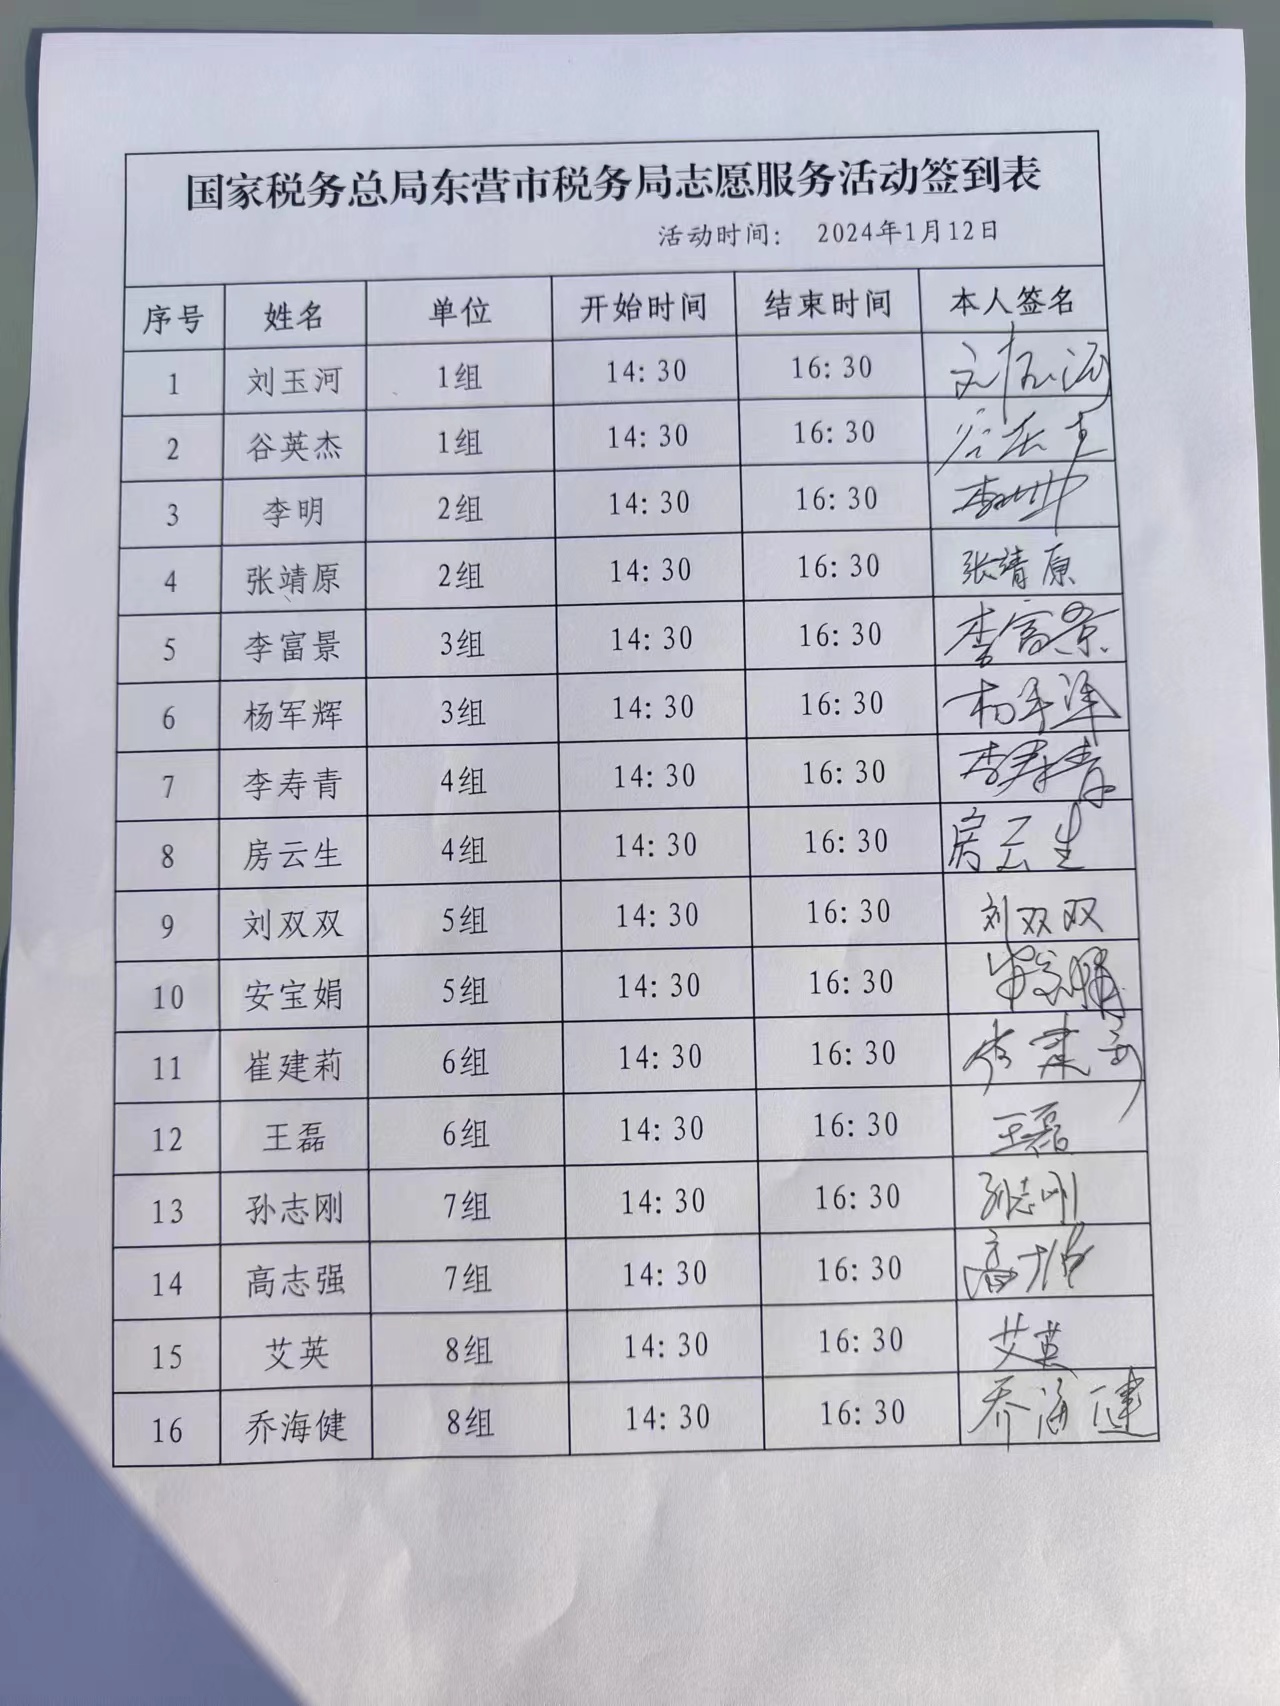 国家税务总局东营市税务局志愿服务活动签到表
活动时间： 2024年1月12日
序号 姓名 单位 开始时间 结束时间 本人签名
1 刘玉河 1组 14:30 16:30 刘玉河
2 谷英杰 1组 14:30 16:30
3 李明 2组 14:30 16:30 李明
4 张靖原 2组 14:30 16:30 张靖原
5 李富景 3组 14:30 16:30 李富景
6 杨军辉 3组 14:30 16:30 杨军辉
7 李寿青 4组 14:30 16:30 李寿青
8 房云生 4组 14:30 16:30 房云生
9 刘双双 5组 14:30 16:30 刘双双
10 安宝娟 5组 14:30 16:30 安宝娟
11 崔建莉 6组 14:30 16:30 崔建莉
12 王磊 6组 14:30 16:30 王磊
13 孙志刚 7组 14:30 16:30 孙志刚
14 高志强 7组 14:30 16:30
15 艾英 8组 14:30 16:30 艾英
16 乔海健 8组 14:30 16:30 乔海健